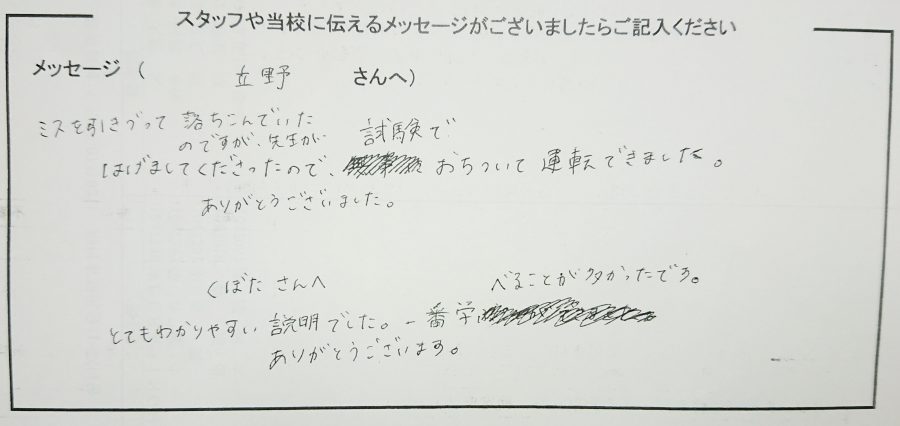 スタッフや当校に伝えるメッセージがございましたらご記入ください
メッセージ（ 立野 さんへ）
ミスを引きづって落ちこんでいた
のですが、先生が
はげましてくださったので、試験でおちついて運転できました。
ありがとうございました。
くぼたさんへ
とてもわかりやすい説明でした。一番学べることが多かったです。
ありがとうございます。